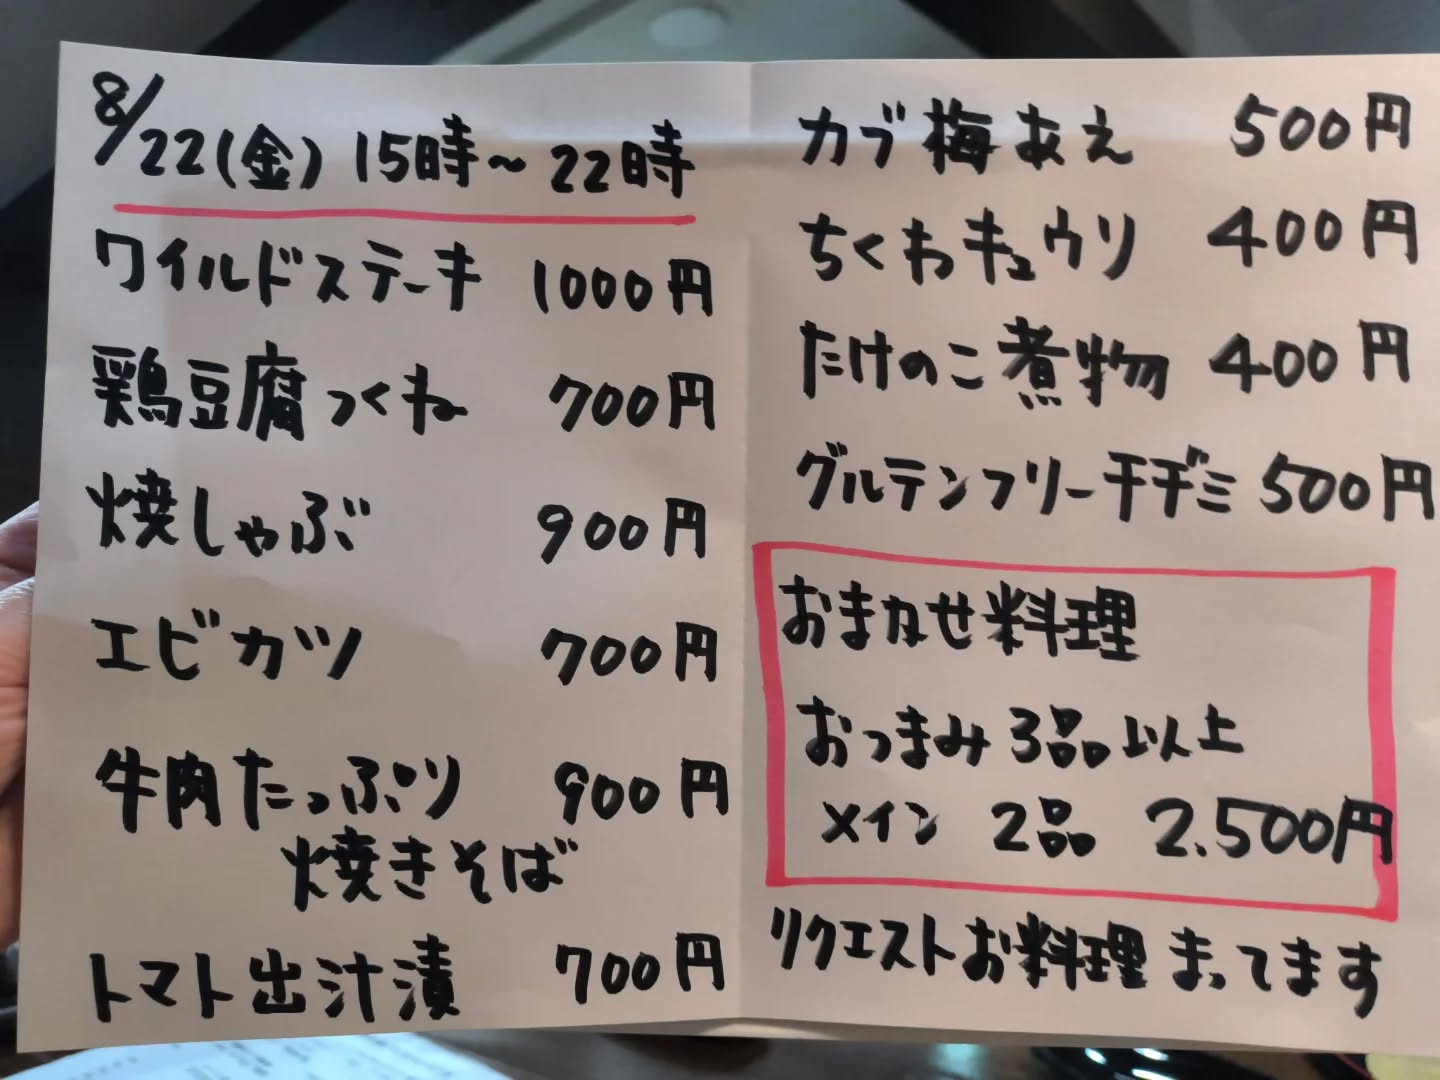 8/22(金) 15時~22時
ワイルドステーキ 1000円
鶏豆腐つくね 700円
焼しゃぶ 900円
エビカツ 700円
牛肉たっぷり 900円
焼きそば
トマト出汁漬 700円
カブ梅あえ 500円
ちくわキュウリ 400円
たけのこ煮物 400円
グルテンフリーチヂミ 500円
おまかせ料理
おつまみ3品以上
メイン 2品 2.500円
リクエストお料理まってます